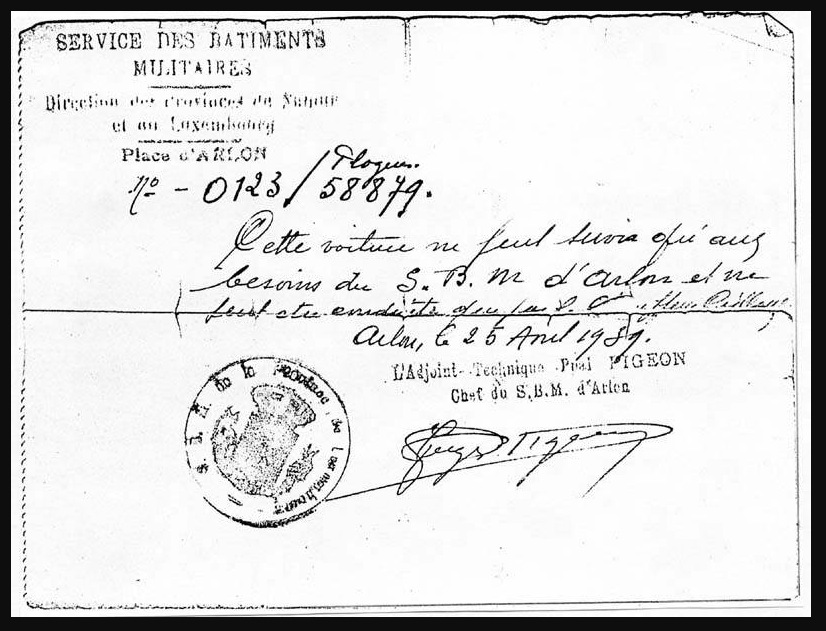 SERVICE DES BATIMENTS
MILITAIRES
Direction des Provinces de Namur
et du Luxembourg
Place d'ARLON
Plaques.
No - 0123 / 58879.
Cette voiture ne peut servir qu'aux
besoins du S.B.M d'Arlon et ne
peut être conduite que par
Arlon, le 25 Avril 19
L'Adjoint-Technique Ppal PIGEON
Chef du S.B.M. d'Arlon
S.B.M de la Province de Luxembourg
Pigeon